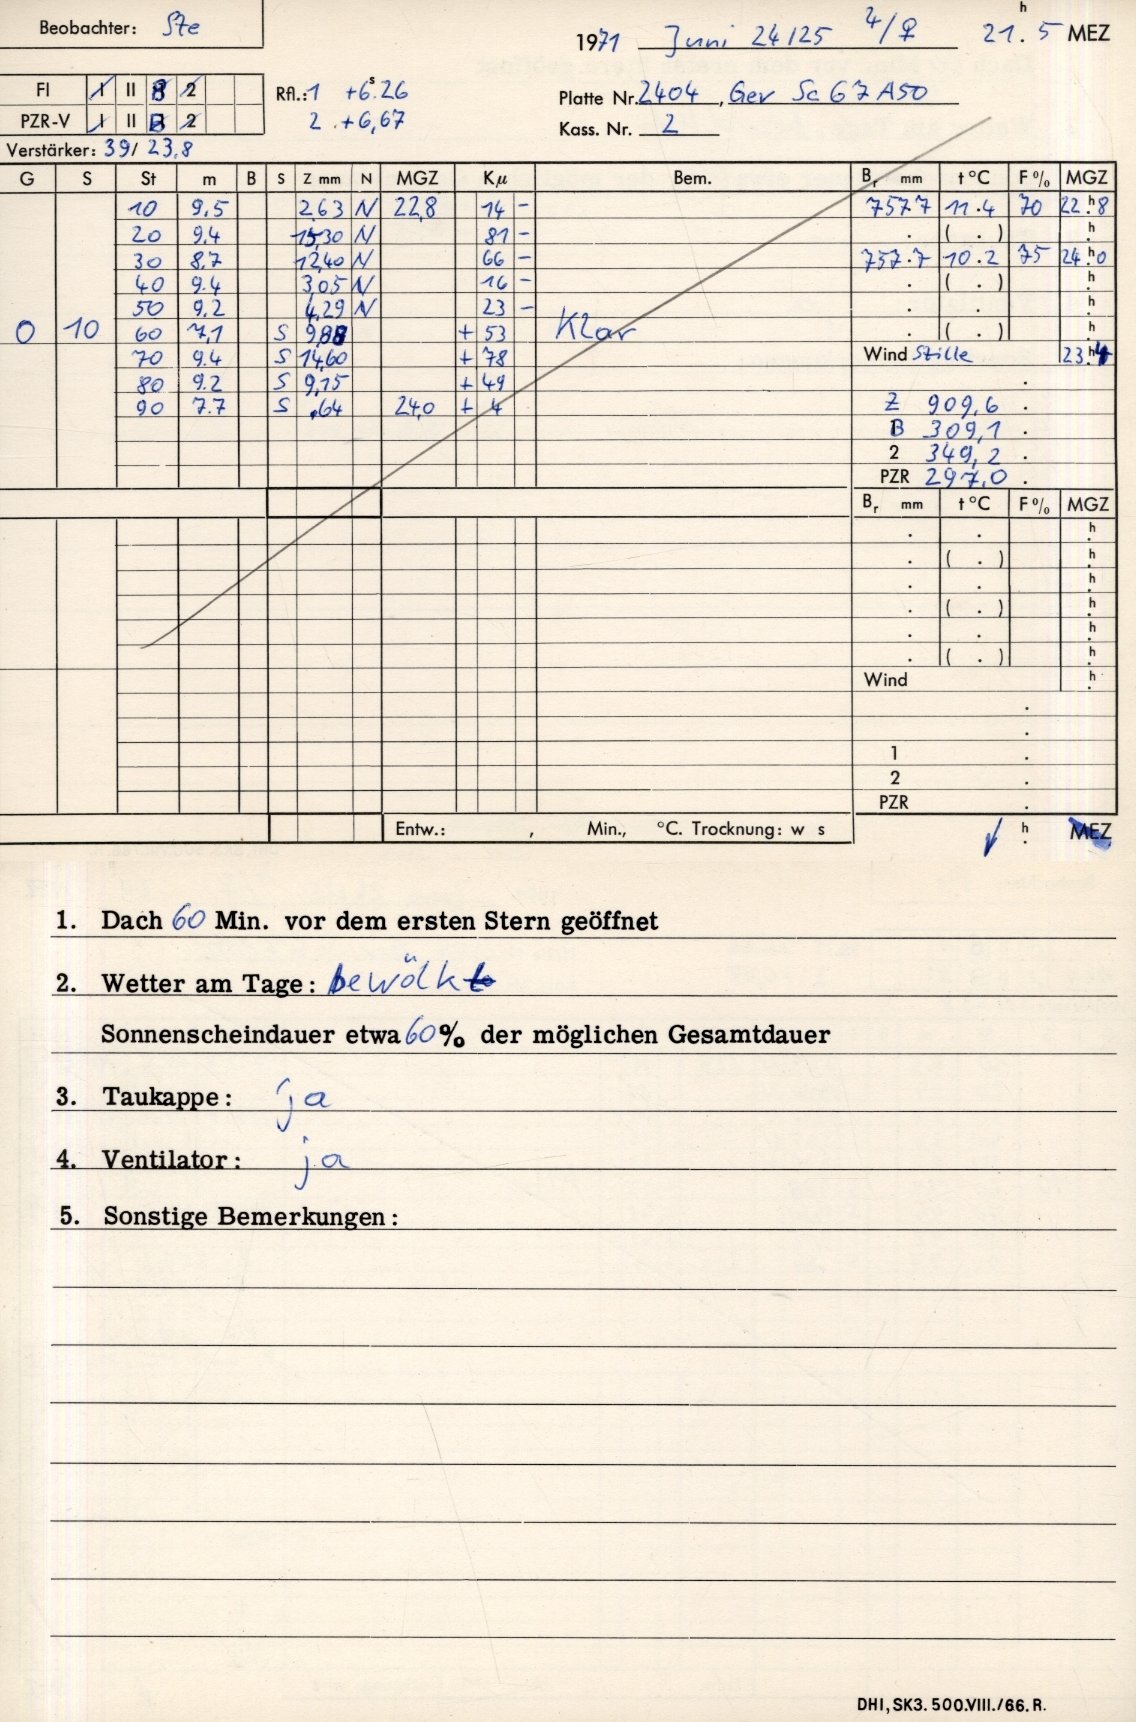 Beobachter: Ste
1971 Juni 24/25 4/♀ 21.ʰ5 MEZ
FI I II B 2
Rfl.: 1 +6ˢ.26
Platte Nr. 2404, Gev Sc 67 A50
PZR-V I II B 2
2 . +6,67
Kass. Nr. 2
Verstärker: 39/ 23,8
G S St m B S Z mm N MGZ Kμ Bem. Bᵣ mm t °C F % MGZ
10 9.5 2,63 N 22,8 14 - 757.7 11.4 70 22.ʰ8
20 9.4 15,30 N 81 - . ( . ) .ʰ
30 8.7 12,40 N 66 - 757.7 10.2 75 24.ʰ0
40 9.4 3,05 N 16 - . ( . ) .ʰ
50 9.2 4,29 N 23 - . . .ʰ
0 10 60 7,1 S 9,88 + 53 Klar . ( . ) .ʰ
70 9.4 S 14,60 + 78 Wind Stille 23.ʰ4
80 9.2 S 9,15 + 49 .
90 7.7 S ,64 24,0 + 4 Z 909,6 .
B 309,1 .
2 349,2 .
PZR 297,0 .
Bᵣ mm t °C F % MGZ
. . .ʰ
. ( . ) .ʰ
. . .ʰ
. ( . ) .ʰ
. . .ʰ
. ( . ) .ʰ
Wind .ʰ
.
.
1 .
2 .
PZR .
Entw.: , Min., °C. Trocknung: w s .ʰ MEZ
1. Dach 60 Min. vor dem ersten Stern geöffnet
2. Wetter am Tage: bewölkt
Sonnenscheindauer etwa 60% der möglichen Gesamtdauer
3. Taukappe: ja
4. Ventilator: ja
5. Sonstige Bemerkungen:
DHI, SK3. 500.VIII./66. R.